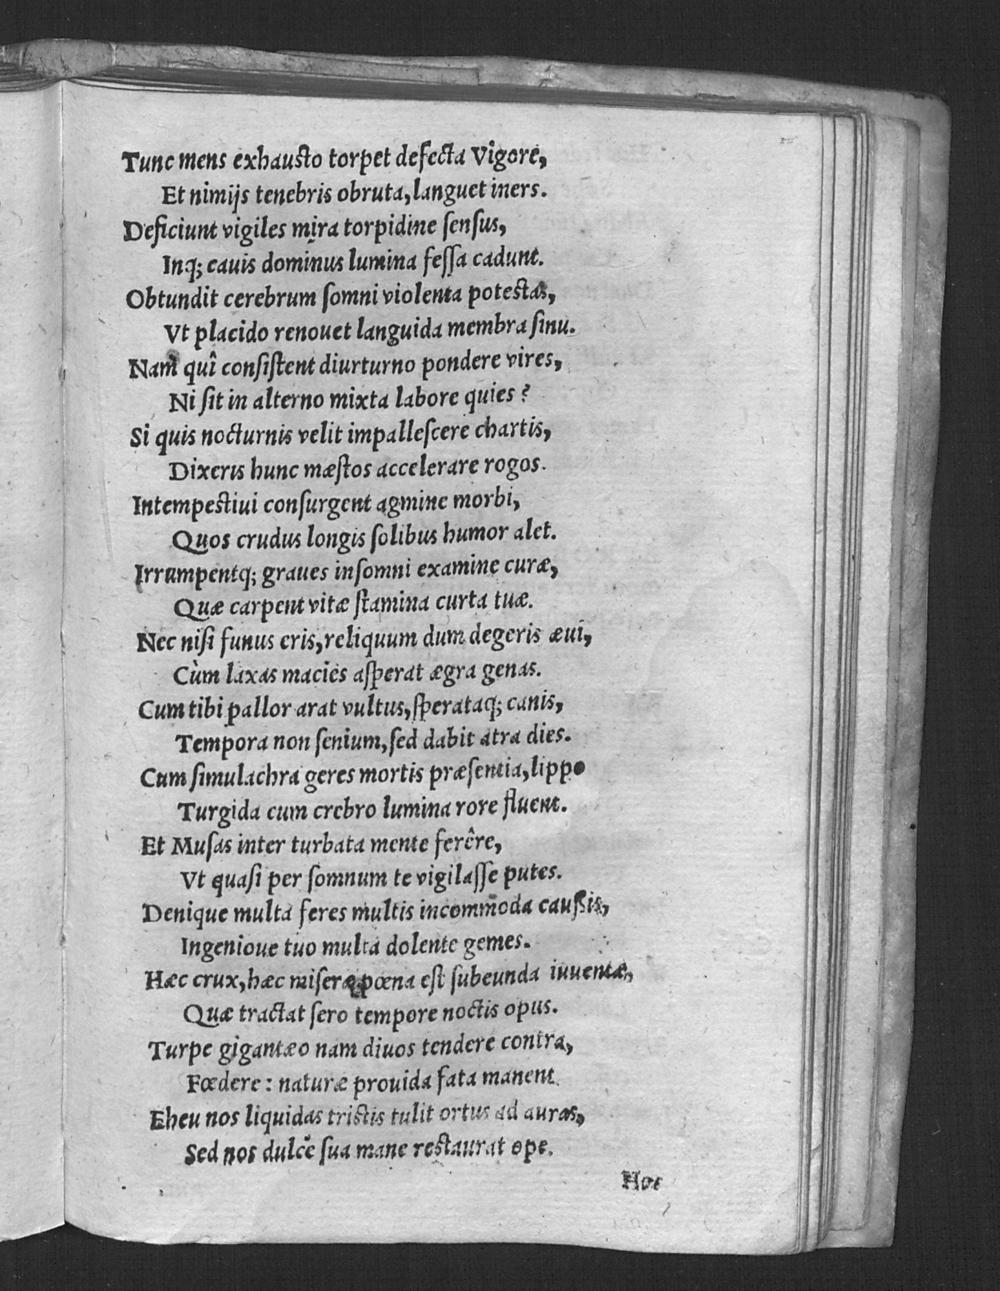 Tunc mens exhausto torpet defecta Vigore,
Et nimijs tenebris obruta, languet iners.
Deficiunt vigiles mira torpidine sensus,
Inq; cauis dominus lumina fessa cadunt.
Obtundit cerebrum somni violenta potestas,
Vt placido renouet languida membra sinu.
Nam quî consistent diurturno pondere vires,
Ni sit in alterno mixta labore quies?
Si quis nocturnis velit impallescere chartis,
Dixeris hunc mæstos accelerare rogos.
Intempestiui consurgent agmine morbi,
Quos crudus longis solibus humor alet.
Irrumpentq; graues insomni examine curæ,
Quæ carpent vitæ stamina curta tuæ.
Nec nisi funus eris, reliquum dum degeris æui,
Cùm laxas macies asperat ægra genas.
Cum tibi pallor arat vultus, sperataq; canis,
Tempora non senium, sed dabit atra dies.
Cum simulachra geres mortis præsentia, lippo
Turgida cum crebro lumina rore fluent.
Et Musas inter turbata mente ferêre,
Vt quasi per somnum te vigilasse putes.
Denique multa feres multis incommoda caussis,
Ingenioue tuo multa dolente gemes.
Hæc crux, hæc miseræ pœna est subeunda iuuentæ,
Quæ tractat sero tempore noctis opus.
Turpe gigantæo nam diuos tendere contra,
Fœdere: naturæ prouida fata manent.
Eheu nos liquidas tristis tulit ortus ad auras,
Sed nos dulce sua mane restaurat ope.
Hoc